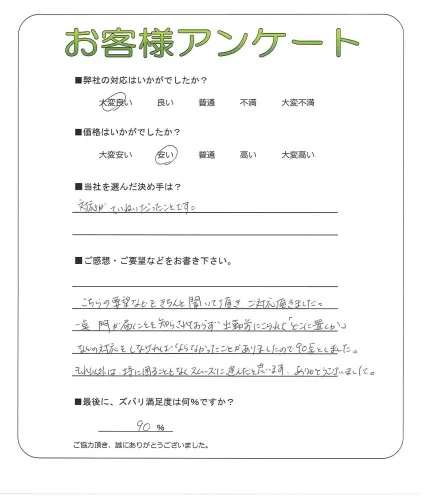 お客様アンケート
■弊社の対応はいかがでしたか？
大変良い 良い 普通 不満 大変不満
■価格はいかがでしたか？
大変安い 安い 普通 高い 大変高い
■当社を選んだ決め手は？
対応がていねいだったことです。
■ご感想・ご要望などをお書き下さい。
こちらの要望などをきちんと聞いて頂き ご対応頂きました。
一点 門が届くことを知らされておらず 出勤前にこられて「どこに置くか」
ないの対応をしなければならなかったことがありましたので90点としました。
それ以外は、特に困ることもなくスムーズに進んだと思います。ありがとうございました。
■最後に、ズバリ満足度は何％ですか？
90 %
ご協力頂き、誠にありがとうございました。